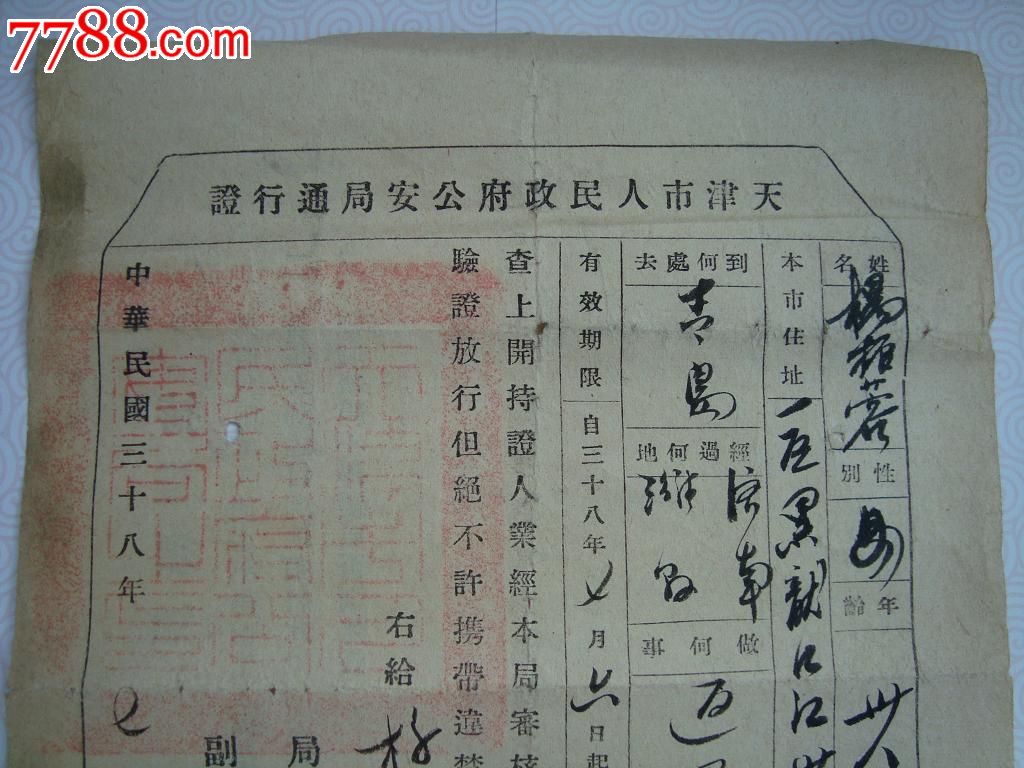 7788.com
天津市人民政府公安局通行證
姓名
楊栢蓉
性別
年齡
卅八
本市住址
一區黑龍江
到何處去
青島
經過何地
濟南
濰縣
做何事
返
有效期限
自三十八年七月六日起
查上開持證人業經本局審核
驗證放行但絕不許攜帶違禁
右給
楊
局
副
中華民國三十八年七